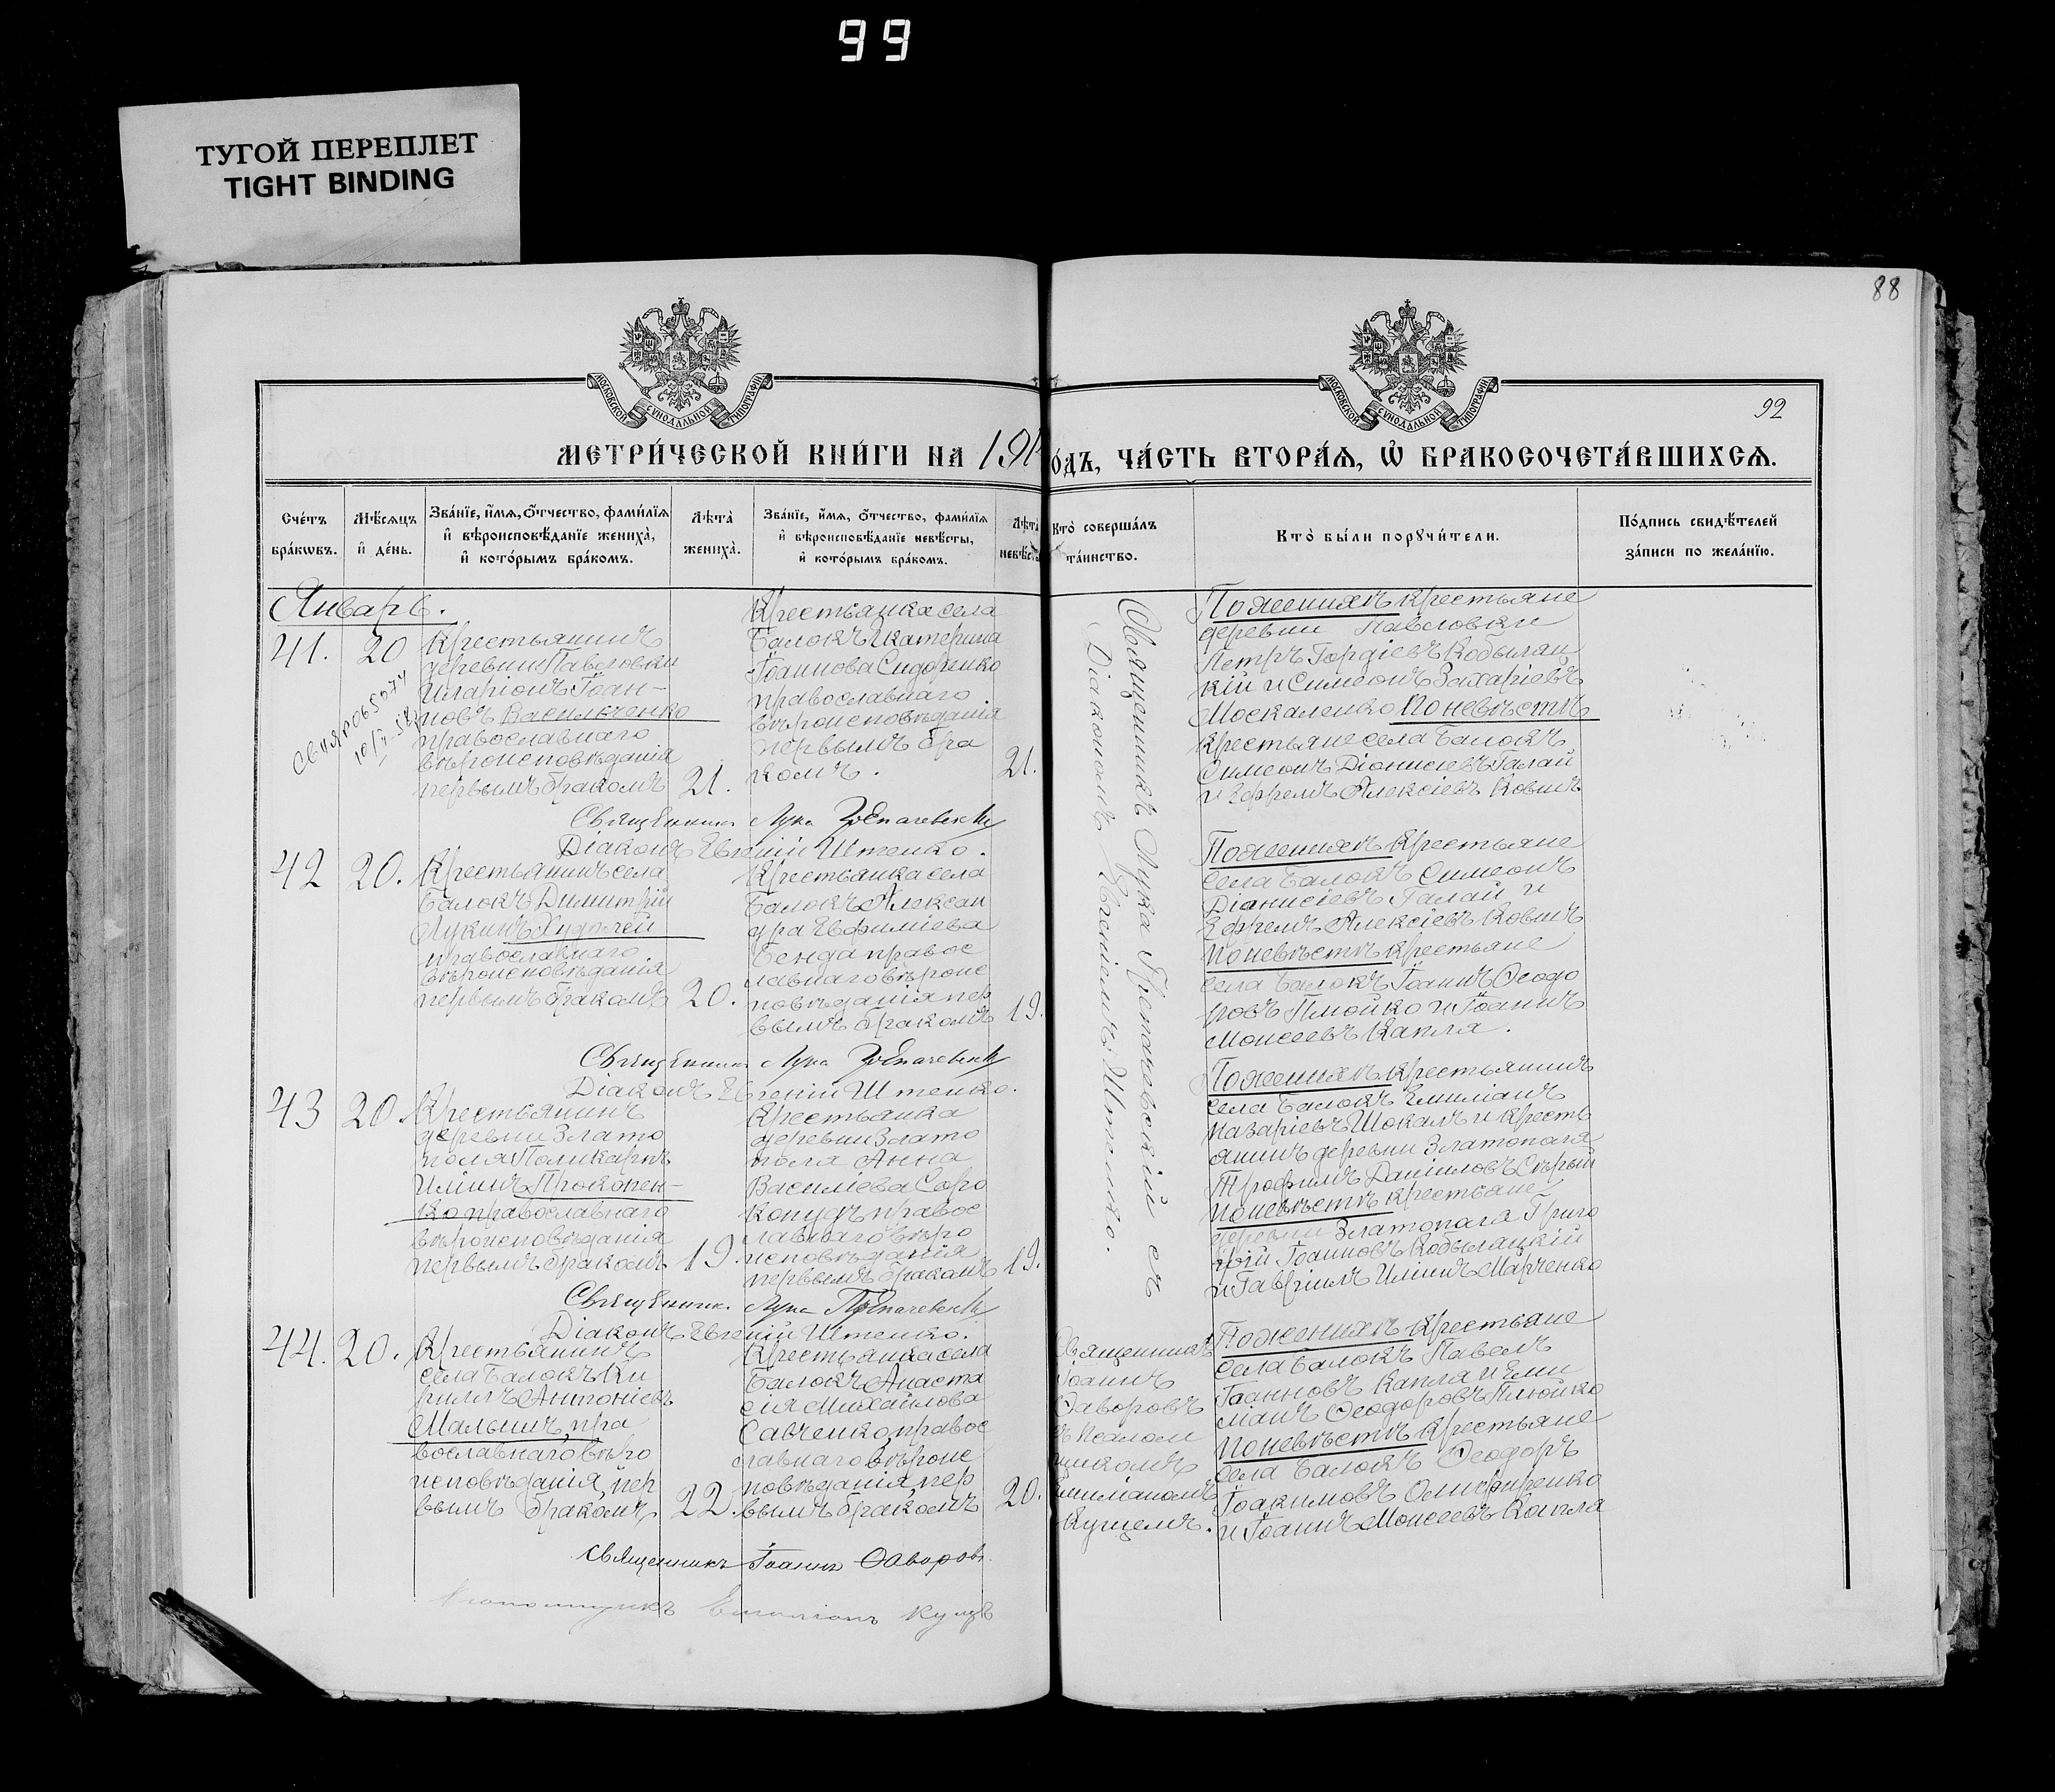 99
ТУГОЙ ПЕРЕПЛЕТ
TIGHT BINDING
88
МОСКОВСКОЙ СѴНОДАЛЬНОЙ ТИПОГРАФІИ
МОСКОВСКОЙ СѴНОДАЛЬНОЙ ТИПОГРАФІИ
92
МЕТРИ́ЧЕСКОЙ КНИ́ГИ НА 191 О́ДЪ, ЧА́СТЬ ВТОРА́Я, Ѡ҆ БРАКОСОЧЕТА́ВШИХСЯ.
Сче́тъ бра́кѡвъ.
Мѣ́сяцъ и҆ де́нь.
Зва́нїе, и҆́мя, ѻ҆́тчество, фами́лїя и҆ вѣроисповѣ́данїе жениха̀, и҆ кото́рымъ бра́комъ.
Лѣ́та жениха̀.
Зва́нїе, и҆́мя, ѻ҆́тчество, фами́лїя и҆ вѣроисповѣ́данїе невѣ́сты, и҆ кото́рымъ бра́комъ.
Лѣ́та невѣ́с
Кто̀ соверша́лъ та́инство.
Кто̀ бы́ли порꙋчи́тели.
По́дпись свидѣ́телей за́писи по жела́нїю.
Январь.
41.
20
Крестьянинъ
деревни Павловки
Иларіонъ Іоан-
новъ Васильченко
православнаго
вѣроисповѣданія
первымъ бракомъ
21.
Крестьянка села
Балокъ Екатерина
Іоаннова Сидоренко
православнаго
вѣроисповѣданія
первымъ бра
комъ.
21.
Священникъ Лука
Діаконъ Евгеній Штепко.
Священникъ Лука
Діакономъ Евгеніемъ Штепко.
По женихѣ крестьяне
деревни Павловки
Петръ Гордіевъ Кобыляц
кій и Симеонъ Захаріевъ
Москаленко По невѣстѣ
крестьяне села Балокъ
Симеонъ Діонисіевъ Галай
и Ефремъ Алексіевъ Ковшъ
42
20.
Крестьянинъ села
Балокъ Димитрій
Лукинъ Худолей
православнаго
вѣроисповѣданія
первымъ бракомъ
20.
Крестьянка села
Балокъ Алексан
дра Евфиміева
Бенда правос
лавнаго вѣроис
повѣданія пер
вымъ бракомъ
19.
Священникъ Лука
Діаконъ Евгеній Штепко.
По женихѣ крестьяне
села Балокъ Симеонъ
Діанисіевъ Галай и
Ефремъ Алексіевъ Ковшъ
По невѣстѣ крестьяне
села Балокъ Іоаннъ Ѳеодо
ровъ Плюйко и Іоаннъ
Моисеевъ Капля.
43
20.
Крестьянинъ
деревни Злато
поля Поликарпъ
Иліинъ Прокопен-
ко православнаго
вѣроисповѣданія
первымъ бракомъ
19.
Крестьянка
деревни Злато
поля Анна
Василіева Соро
копудъ правос
лавнаго вѣро
исповѣданія
первымъ бракомъ
19.
Священникъ Лука
Діаконъ Евгеній Штепко.
По женихѣ крестьянинъ
села Балокъ Емиліанъ
Назаріевъ Шокалъ и кресть
янинъ деревни Златополя
Трофимъ Даніиловъ Сѣрый
По невѣстѣ крестьяне
деревни Златополя Григо
рій Іоанновъ Кобыляцкій
и Гавріилъ Иліинъ Марченко
44.
20.
Крестьянинъ
села Балокъ Ки
риллъ Антоніевъ
Малышъ, пра
вославнаго вѣро
исповѣданія, пер
вымъ бракомъ,
22.
Крестьянка села
Балокъ Анаста
сія Михайлова
Савченко, правос
лавнаго вѣроис
повѣданія, пер
вымъ бракомъ
20.
Священникъ
Іоаннъ
Ѳаворовъ
съ Псалом
щикомъ
Емиліаномъ
Куцемъ.
По женихѣ крестьяне
села Балокъ Павелъ
Іоанновъ Капля и Еми
ліанъ Ѳеодоровъ Плюйко
По невѣстѣ крестьяне
села Балокъ Ѳеодоръ
Іоакимовъ Онифиренко
и Іоаннъ Моисеевъ Капля
Священникъ Іоаннъ Ѳаворовъ
Псаломщикъ Емиліанъ Куцъ